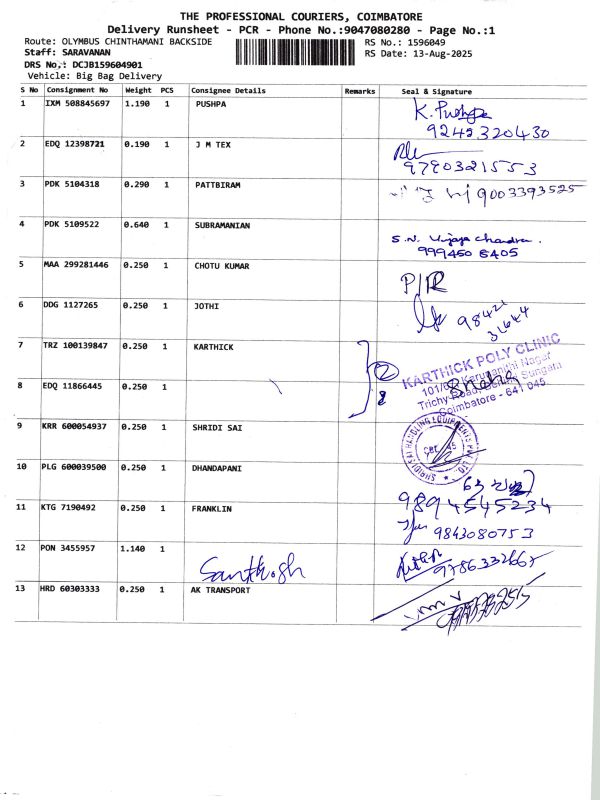 THE PROFESSIONAL COURIERS, COIMBATORE
Delivery Runsheet - PCR - Phone No.:9047080280 - Page No.:1
Route: OLYMBUS CHINTHAMANI BACKSIDE RS No.: 1596049
Staff: SARAVANAN RS Date: 13-Aug-2025
DRS No.: DCJB159604901
Vehicle: Big Bag Delivery
S No Consignment No Weight PCS Consignee Details Remarks Seal & Signature
1 IXM 508845697 1.190 1 PUSHPA K. Pushpa
9242320430
2 EDQ 12398721 0.190 1 J M TEX
9790321553
3 PDK 5104318 0.290 1 PATTBIRAM 9003393525
4 PDK 5109522 0.640 1 SUBRAMANIAN S.N. Vijaya Chandra.
999450 8405
5 MAA 299281446 0.250 1 CHOTU KUMAR P/R
6 DDG 1127265 0.250 1 JOTHI 98421
31644
7 TRZ 100139847 0.250 1 KARTHICK 2 KARTHICK POLY CLINIC
8 EDQ 11866445 0.250 1 Sneha
Coimbatore - 641 045
9 KRR 600054937 0.250 1 SHRIDI SAI
10 PLG 600039500 0.250 1 DHANDAPANI
9894545234
11 KTG 7190492 0.250 1 FRANKLIN 9843080753
12 PON 3455957 1.140 1 Santhosh 9786332665
13 HRD 60303333 0.250 1 AK TRANSPORT